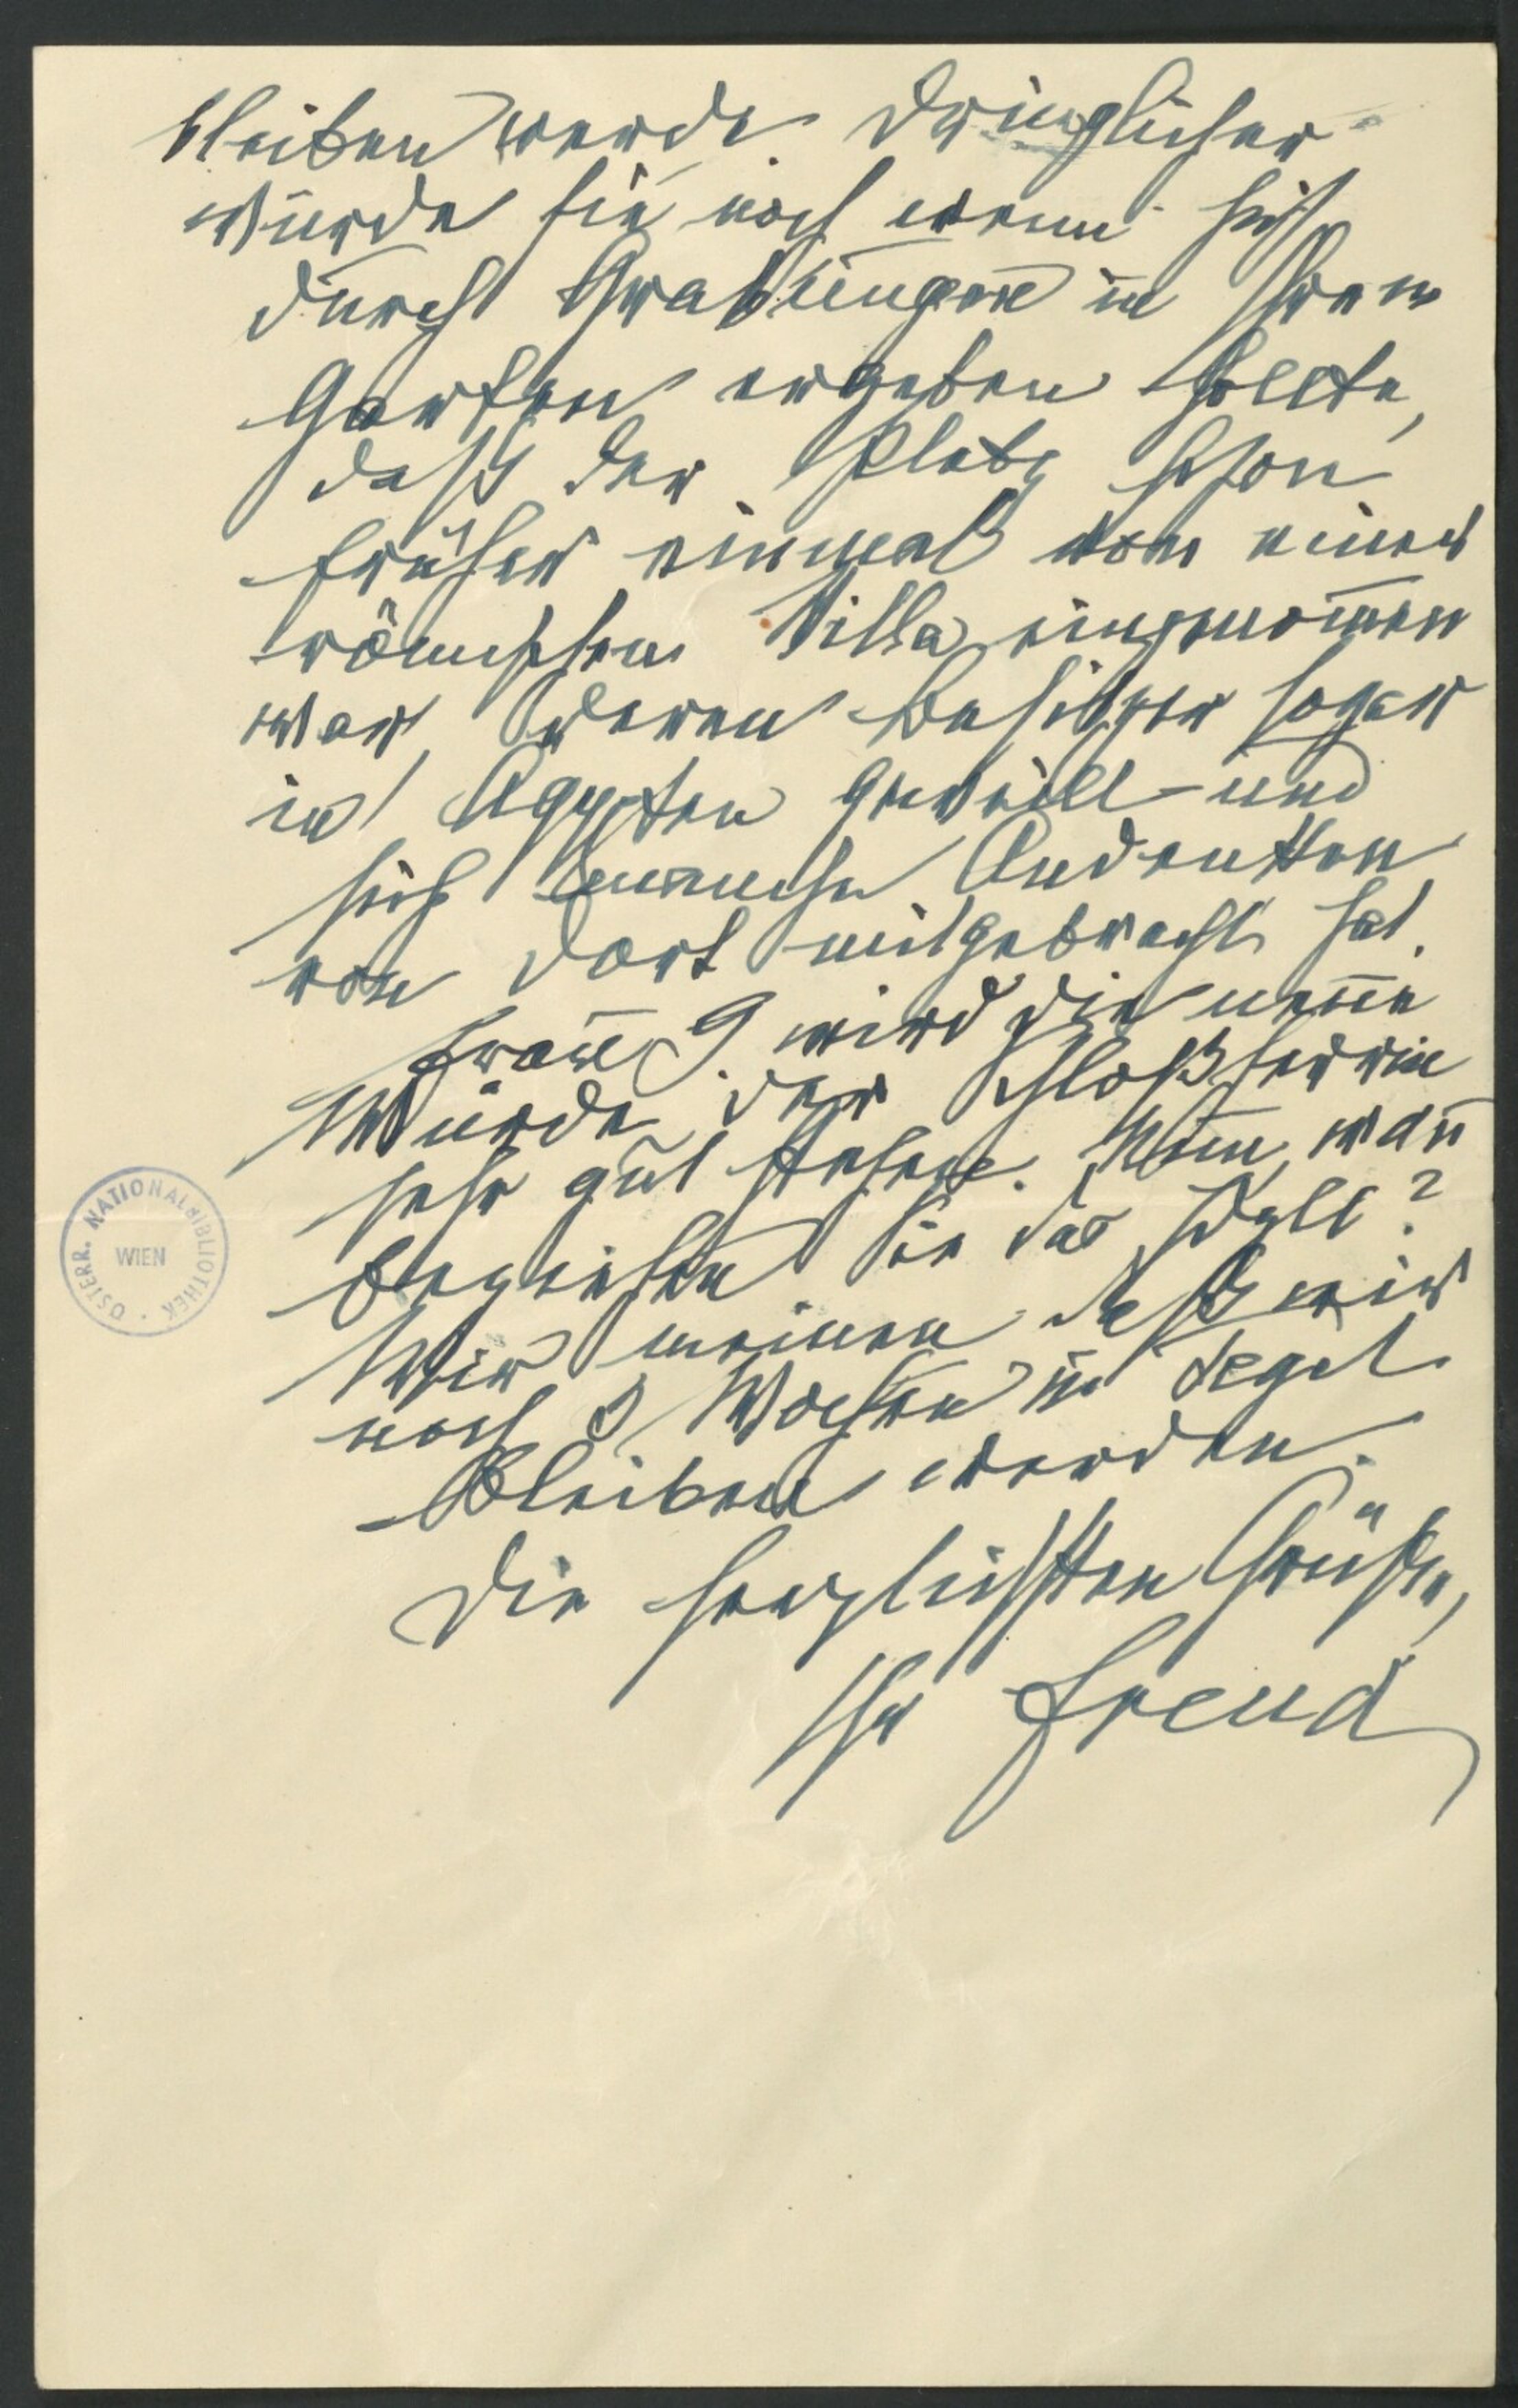 bleiben werde. Dringlicher
würde sie noch wenn sich
durch Grabungen in Ihrem
Garten ergeben sollte,
daß der Platz schon
früher einmal von einer
römischen Villa eingenom̅en
war, deren Besitzer sogar
in Ägypten geweilt und
sich manche Andenken
von dort mitgebracht hat.
Frau G wird die neue
Würde der Schloßherrin
sehr gut stehen. Nun, wan̅
beziehen Sie das Idyll?
Wir meinen daß wir
noch Wochen in Tegel
bleiben werden.
Die herzlichsten Grüße,
Ihr Freud
ÖSTERR. NATIONALBIBLIOTHEK · WIEN